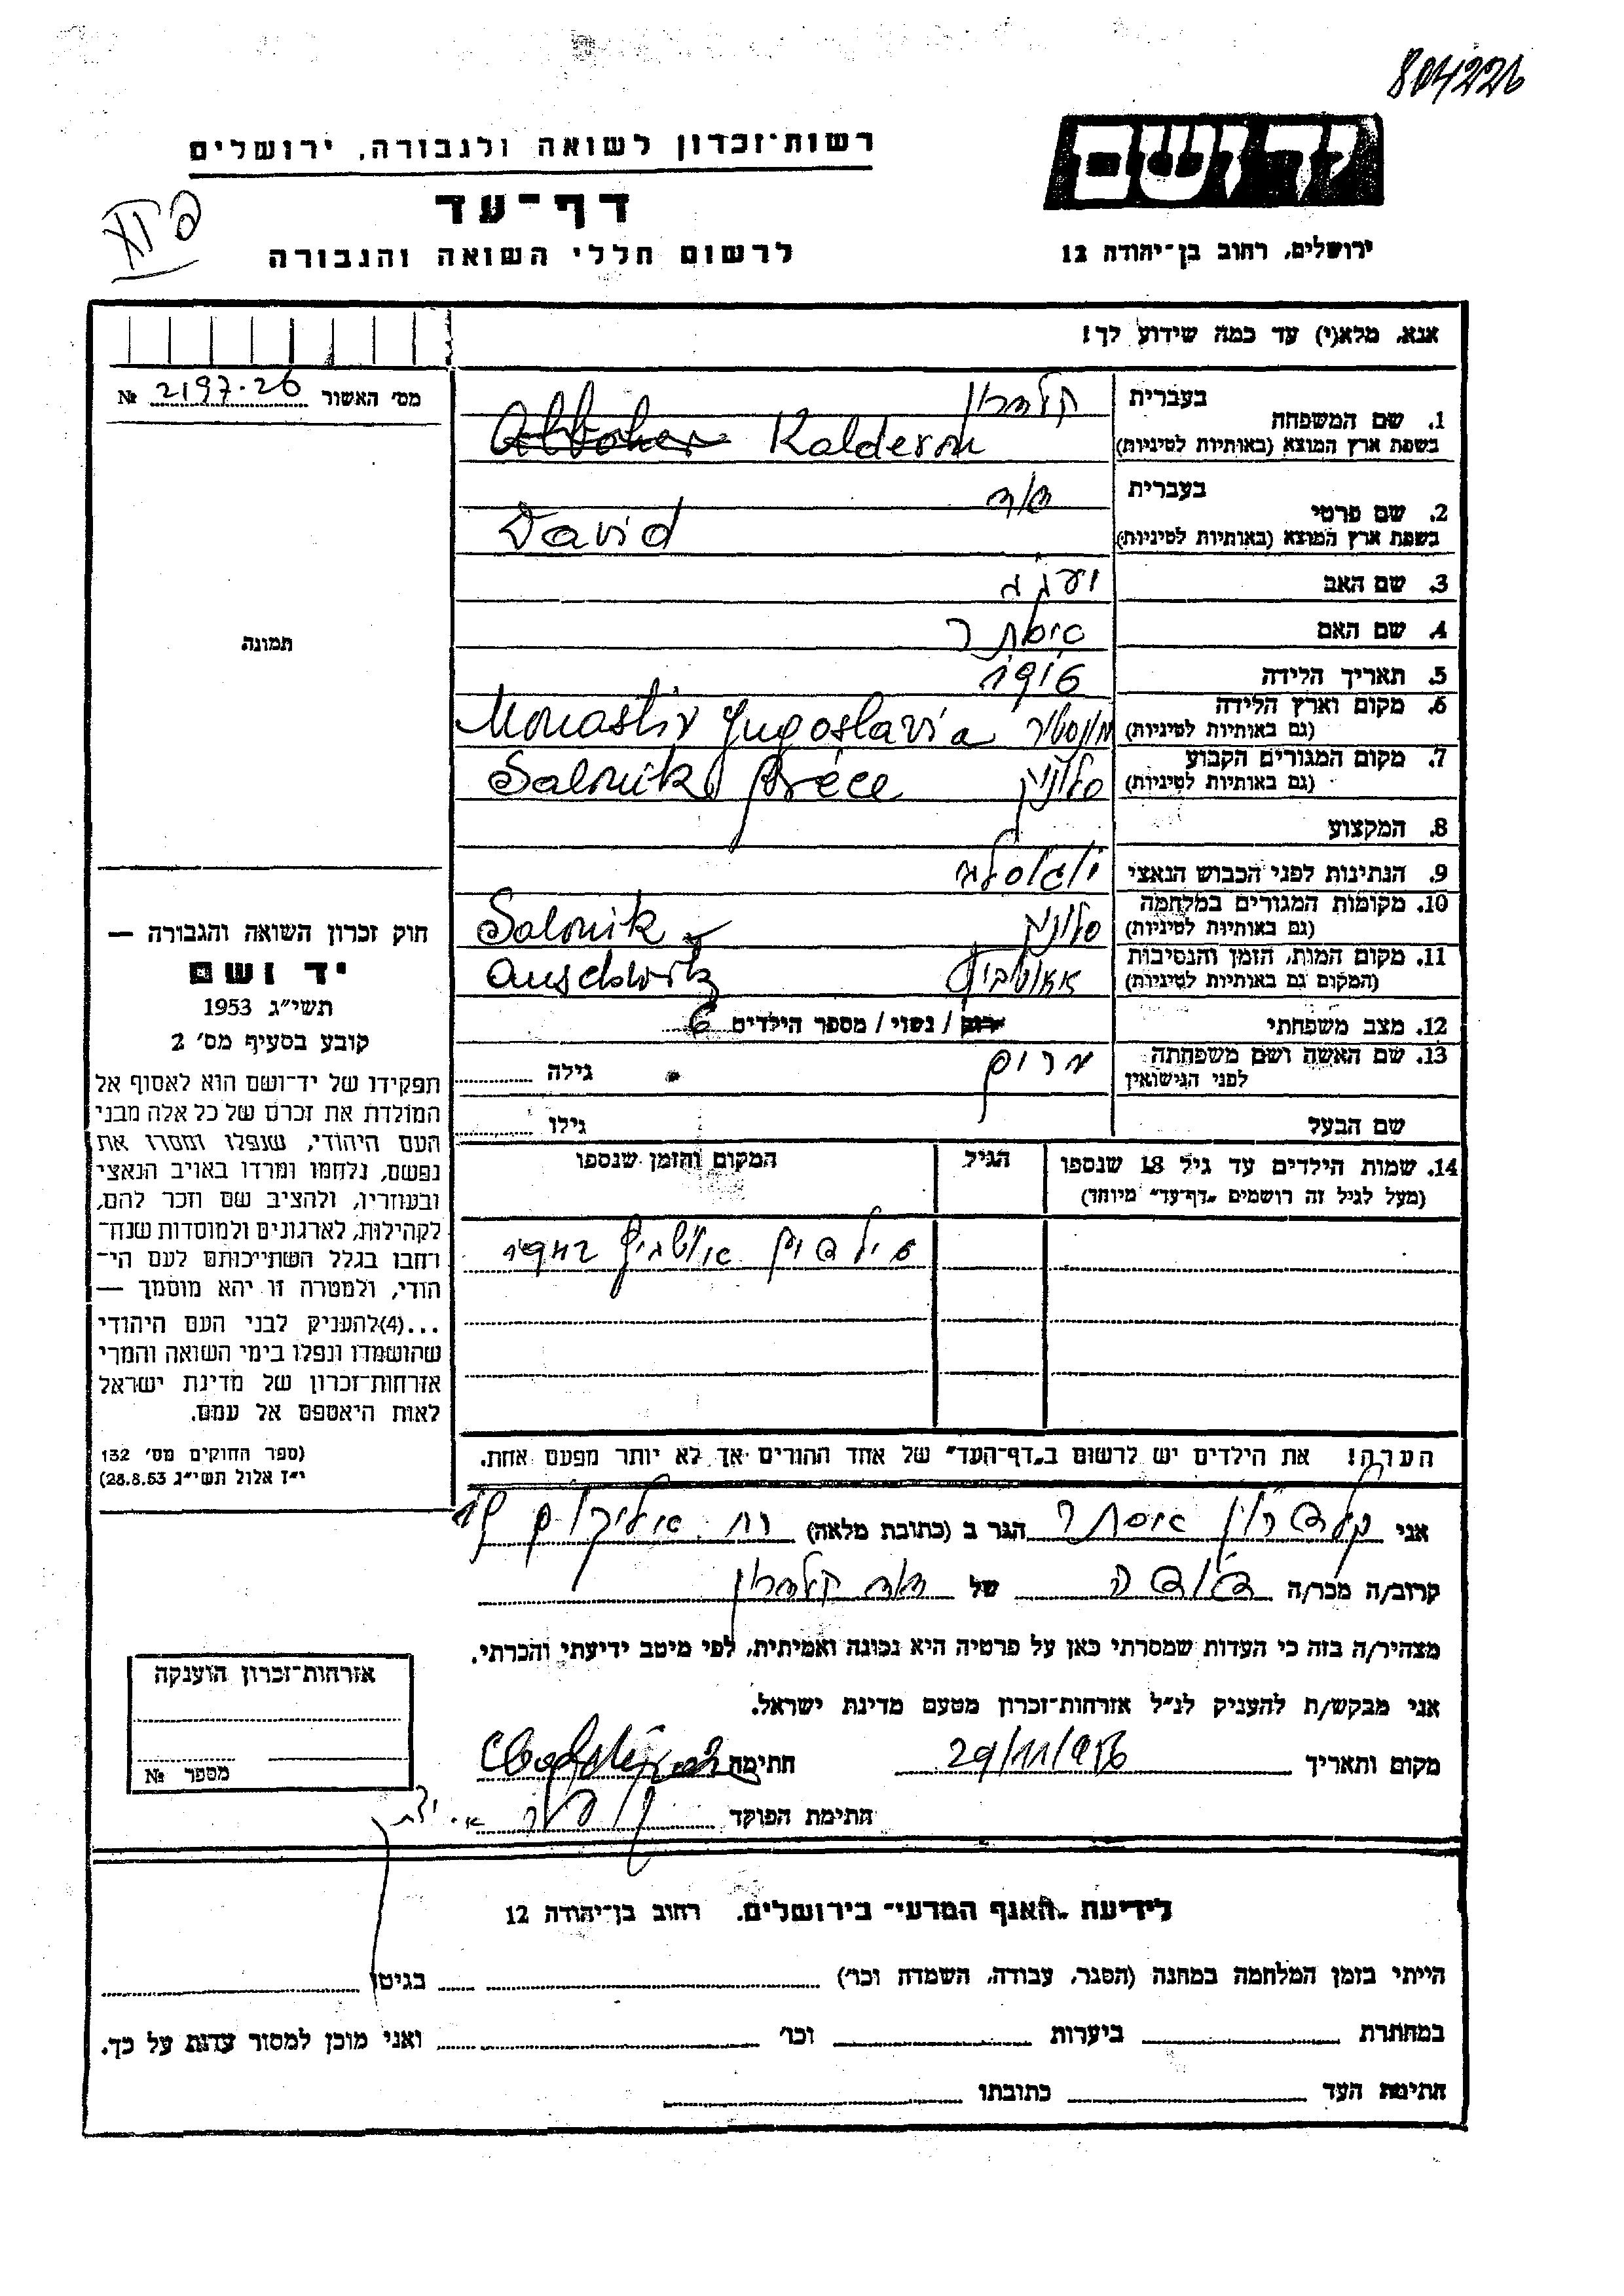 804226
יד ושם
ירושלים, רחוב בן־יהודה 12
רשות־זכרון לשואה ולגבורה, ירושלים
דף־עד
לרשום חללי השואה והגבורה
אנא, מלא(י) עד כמה שידוע לך!
מס׳ האשור 2197-26 №
תמונה
1. שם המשפחה
בעברית קלדרון
בשפת ארץ המוצא (באותיות לטיניות) Kalderon
2. שם פרטי
בעברית דוד
בשפת ארץ המוצא (באותיות לטיניות) David
3. שם האב
4. שם האם
5. תאריך הלידה 1916
6. מקום וארץ הלידה
(גם באותיות לטיניות) מונסטיר Monastir Yugoslavia
7. מקום המגורים הקבוע
(גם באותיות לטיניות) סלוניקי Salonik Grèce
8. המקצוע
9. הנתינות לפני הכבוש הנאצי
10. מקומות המגורים במלחמה
(גם באותיות לטיניות) סלוניק Salonik
11. מקום המות, הזמן והנסיבות
(המקום גם באותיות לטיניות) אאושביץ Auschwitz
12. מצב משפחתי רווק / נשוי / מספר הילדים 6
13. שם האשה ושם משפחתה
לפני הנישואין גילה
שם הבעל גילו
14. שמות הילדים עד גיל 18 שנספו
(מעל לגיל זה רושמים „דף־עד״ מיוחד)
הגיל
המקום והזמן שנספו
אושביץ 1942
הערה! את הילדים יש לרשום ב„דף־העד״ של אחד ההורים אך לא יותר מפעם אחת.
חוק זכרון השואה והגבורה —
יד ושם
תשי״ג 1953
קובע בסעיף מס׳ 2
תפקידו של יד־ושם הוא לאסוף אל
המולדת את זכרם של כל אלה מבני
העם היהודי, שנפלו ומסרו את
נפשם, נלחמו ומרדו באויב הנאצי
ובעוזריו, ולהציב שם וזכר להם,
לקהילות, לארגונים ולמוסדות שנח־
רחבו בגלל השתייכותם לעם הי־
הודי, ולמטרה זו יהא מוסמך —
...(4)להעניק לבני העם היהודי
שהושמדו ונפלו בימי השואה והמרי
אזרחות־זכרון של מדינת ישראל
לאות היאספם אל עמם.
(ספר החוקים מס׳ 132
י״ז אלול תשי״ג 28.8.53)
אני קלדרון אסתר הגר ב (כתובת מלאה)
קרוב/ה מכר/ה דודה של דוד קלדרון
מצהיר/ה בזה כי העדות שמסרתי כאן על פרטיה היא נכונה ואמיתית, לפי מיטב ידיעתי והכרתי.
אני מבקש/ת להעניק לנ״ל אזרחות־זכרון מטעם מדינת ישראל.
מקום ותאריך 29/11/956 חתימה
חתימת הפוקד
אזרחות־זכרון הוענקה
מספר №
לידיעת „האגף המדעי״ בירושלים, רחוב בן־יהודה 12
הייתי בזמן המלחמה במחנה (הסגר, עבודה, השמדה וכר׳) בגיטו
במחתרת ביערות וכר׳ ואני מוכן למסור עדות על כך.
חתימת העד כתובתו